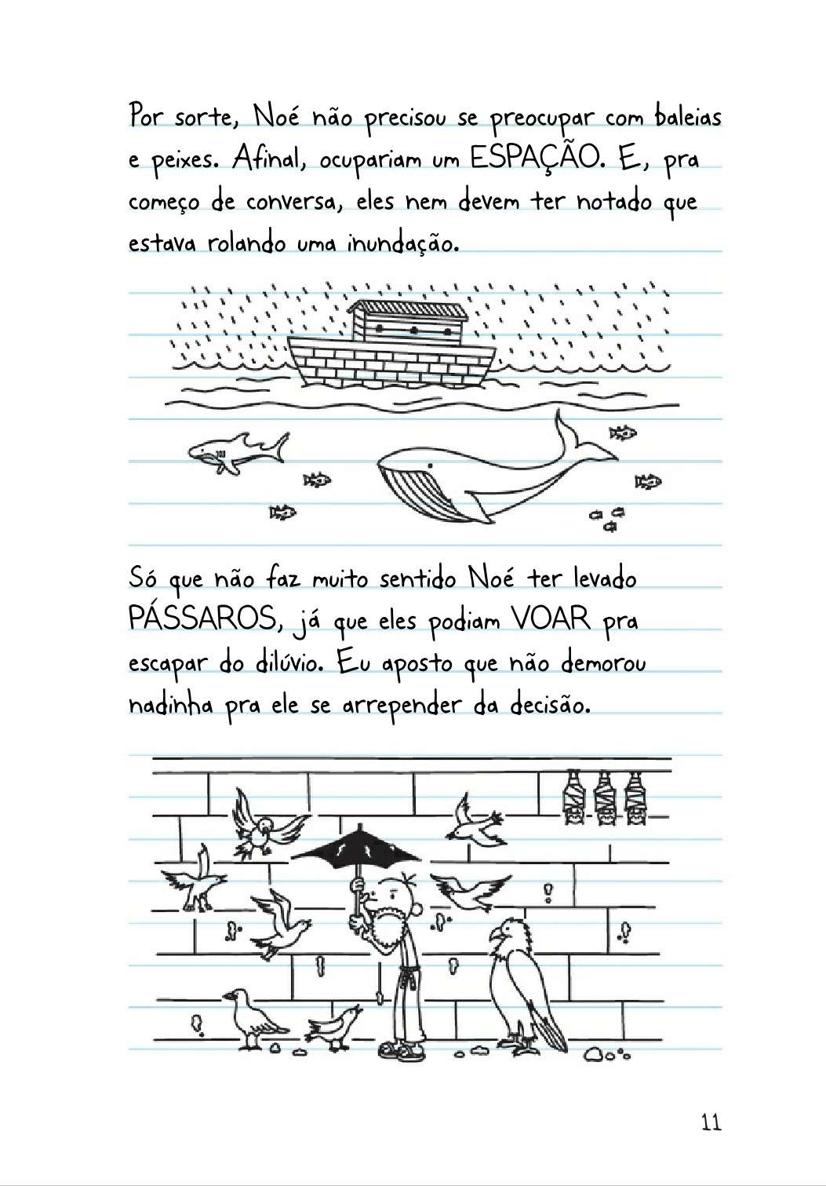 Por sorte, Noé não precisou se preocupar com baleias
e peixes. Afinal, ocupariam um ESPAÇÃO. E, pra
começo de conversa, eles nem devem ter notado que
estava rolando uma inundação.
Só que não faz muito sentido Noé ter levado
PÁSSAROS, já que eles podiam VOAR pra
escapar do dilúvio. Eu aposto que não demorou
nadinha pra ele se arrepender da decisão.
11